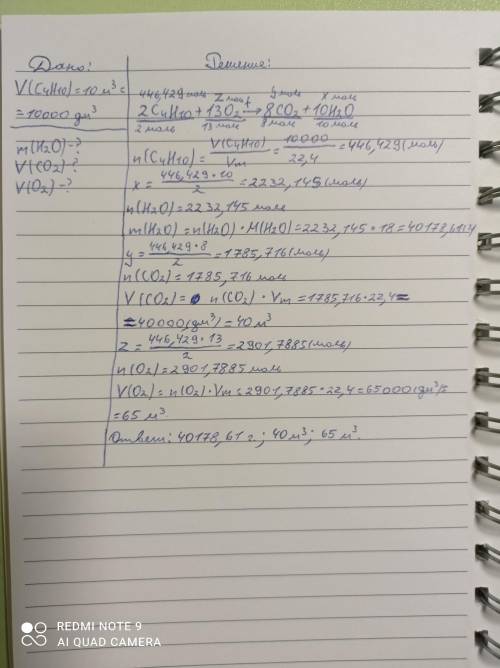 Дано:
V(C4H10)=10 м³=
=10000 дм³
m(H2O)-?
V(CO2)-?
V(O2)-?
Решение:
446,429 моль z моль y моль x моль
2C4H10+13O2→8CO2+10H2O
2 моль 13 моль 8 моль 10 моль
n(C4H10)=V(C4H10)/Vm=10000/22,4=446,429(моль)
x=446,429*10/2=2232,145(моль)
n(H2O)=2232,145 моль
m(H2O)=n(H2O)·M(H2O)=2232,145·18=40178,61(г)
y=446,429*8/2=1785,716(моль)
n(CO2)=1785,716 моль
V(CO2)= n(CO2)·Vm=1785,716·22,4=
=40000(дм³)=40 м³
z=446,429*13/2=2901,7885(моль)
n(O2)=2901,7885 моль
V(O2)=n(O2)·Vm=2901,7885·22,4=65000(дм³)=
=65 м³.
Ответ: 40178,61 г.; 40 м³; 65 м³.
REDMI NOTE 9
AI QUAD CAMERA